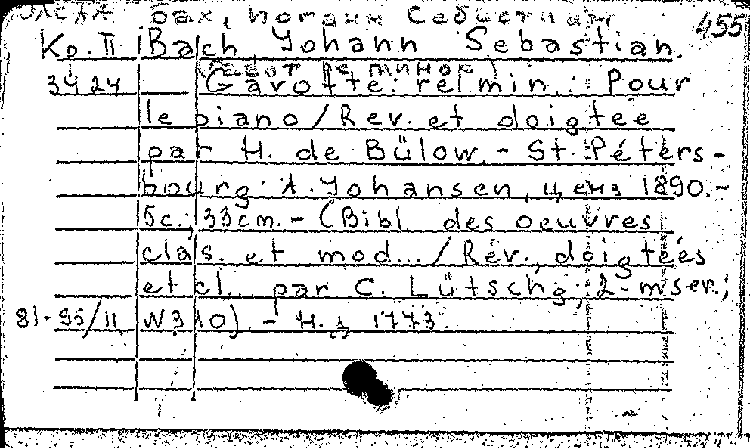 Бах, Иоганн Себастиан 455
Ко.II Bach, Johann Sebastian.
(Гавот ре минор)
3424 Gavotte: ré min.: Pour
le piano / Rev. et doigtée
par H. de Bülow. - St. Péters-
bourg: A. Johansen, ценз 1890. -
5с.; 33cm. - (Bibl des oeuvres
clas. et mod... / Rev., doigtées
et cl. par C. Lütschg;
81-55/11 N310) - Н.д. 1773.